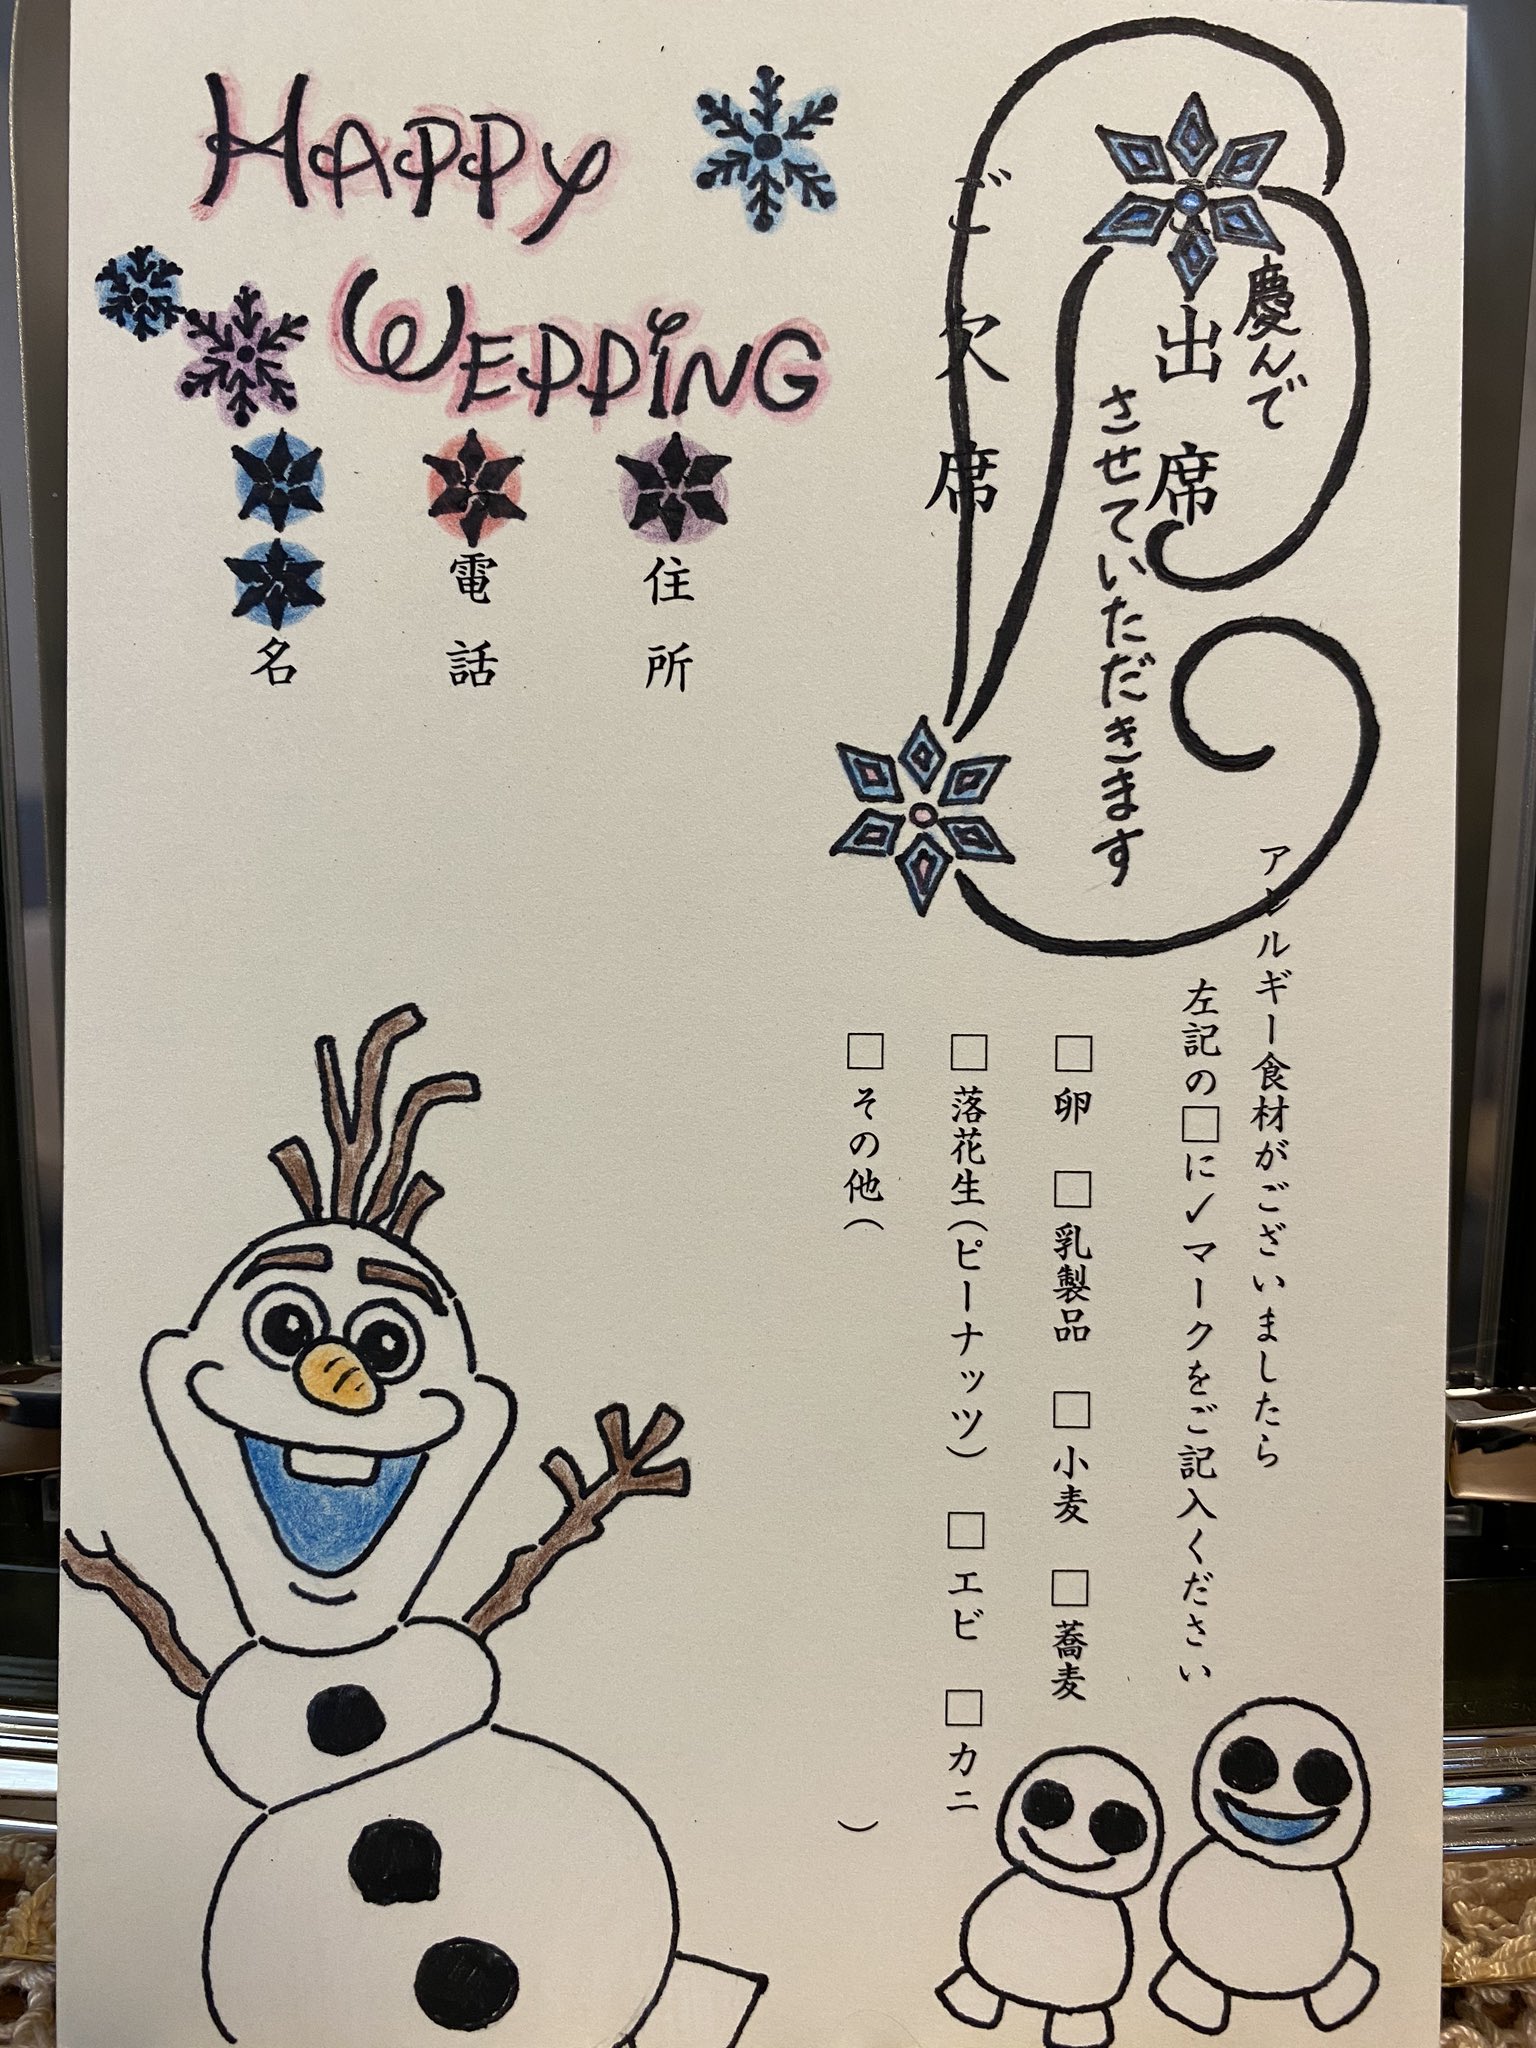 HAPPY
WEDDING
慶んで
出席
させていただきます
ご欠席
アレルギー食材がございましたら
左記の□に✓マークをご記入ください
□卵 □乳製品 □小麦 □蕎麦
□落花生(ピーナッツ) □エビ □カニ
□その他( )
住所
電話
名